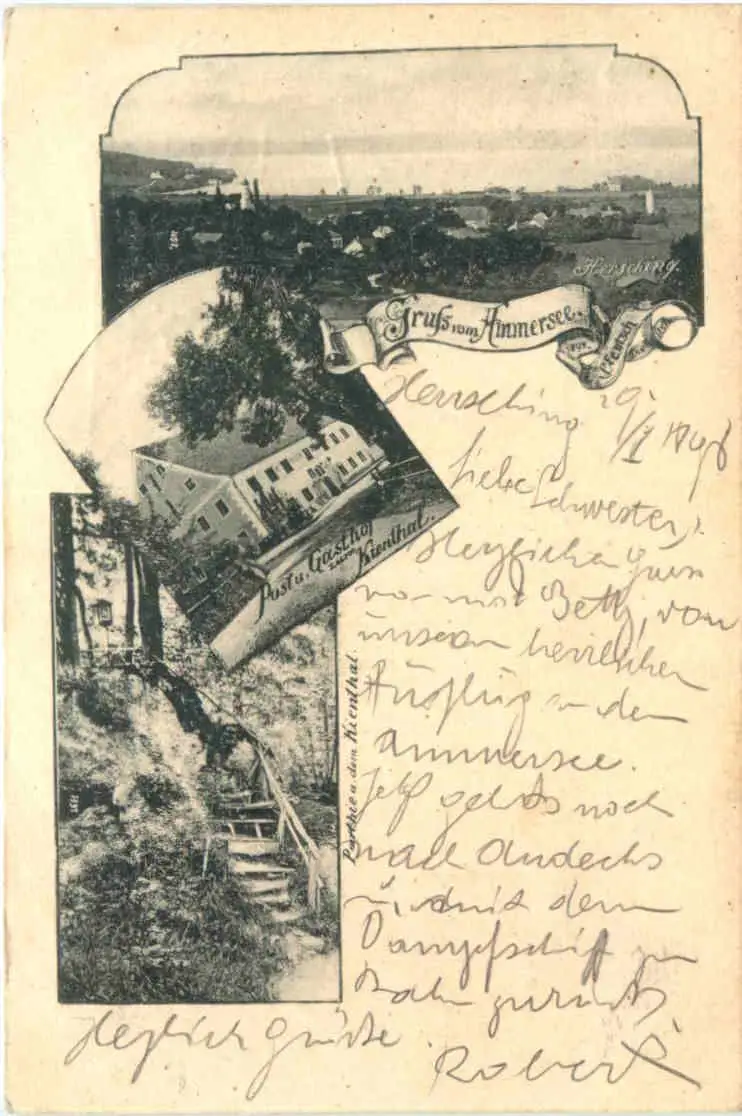 Hersching.
Gruß vom Ammersee.
Post u. Gasthof
zum
Kienthal.
Parthie a. dem Kienthal.
Herrsching
Liebe Schwester,
Herzlichen Gruss
von mir Betty, vom
unseren herrlichen
Ausflug an den
Ammersee.
Jetzt gehts noch
nach Andechs
u. mit dem
Dampfschiff zur
Bahn zurück.
Herzlich Grüße
Robert